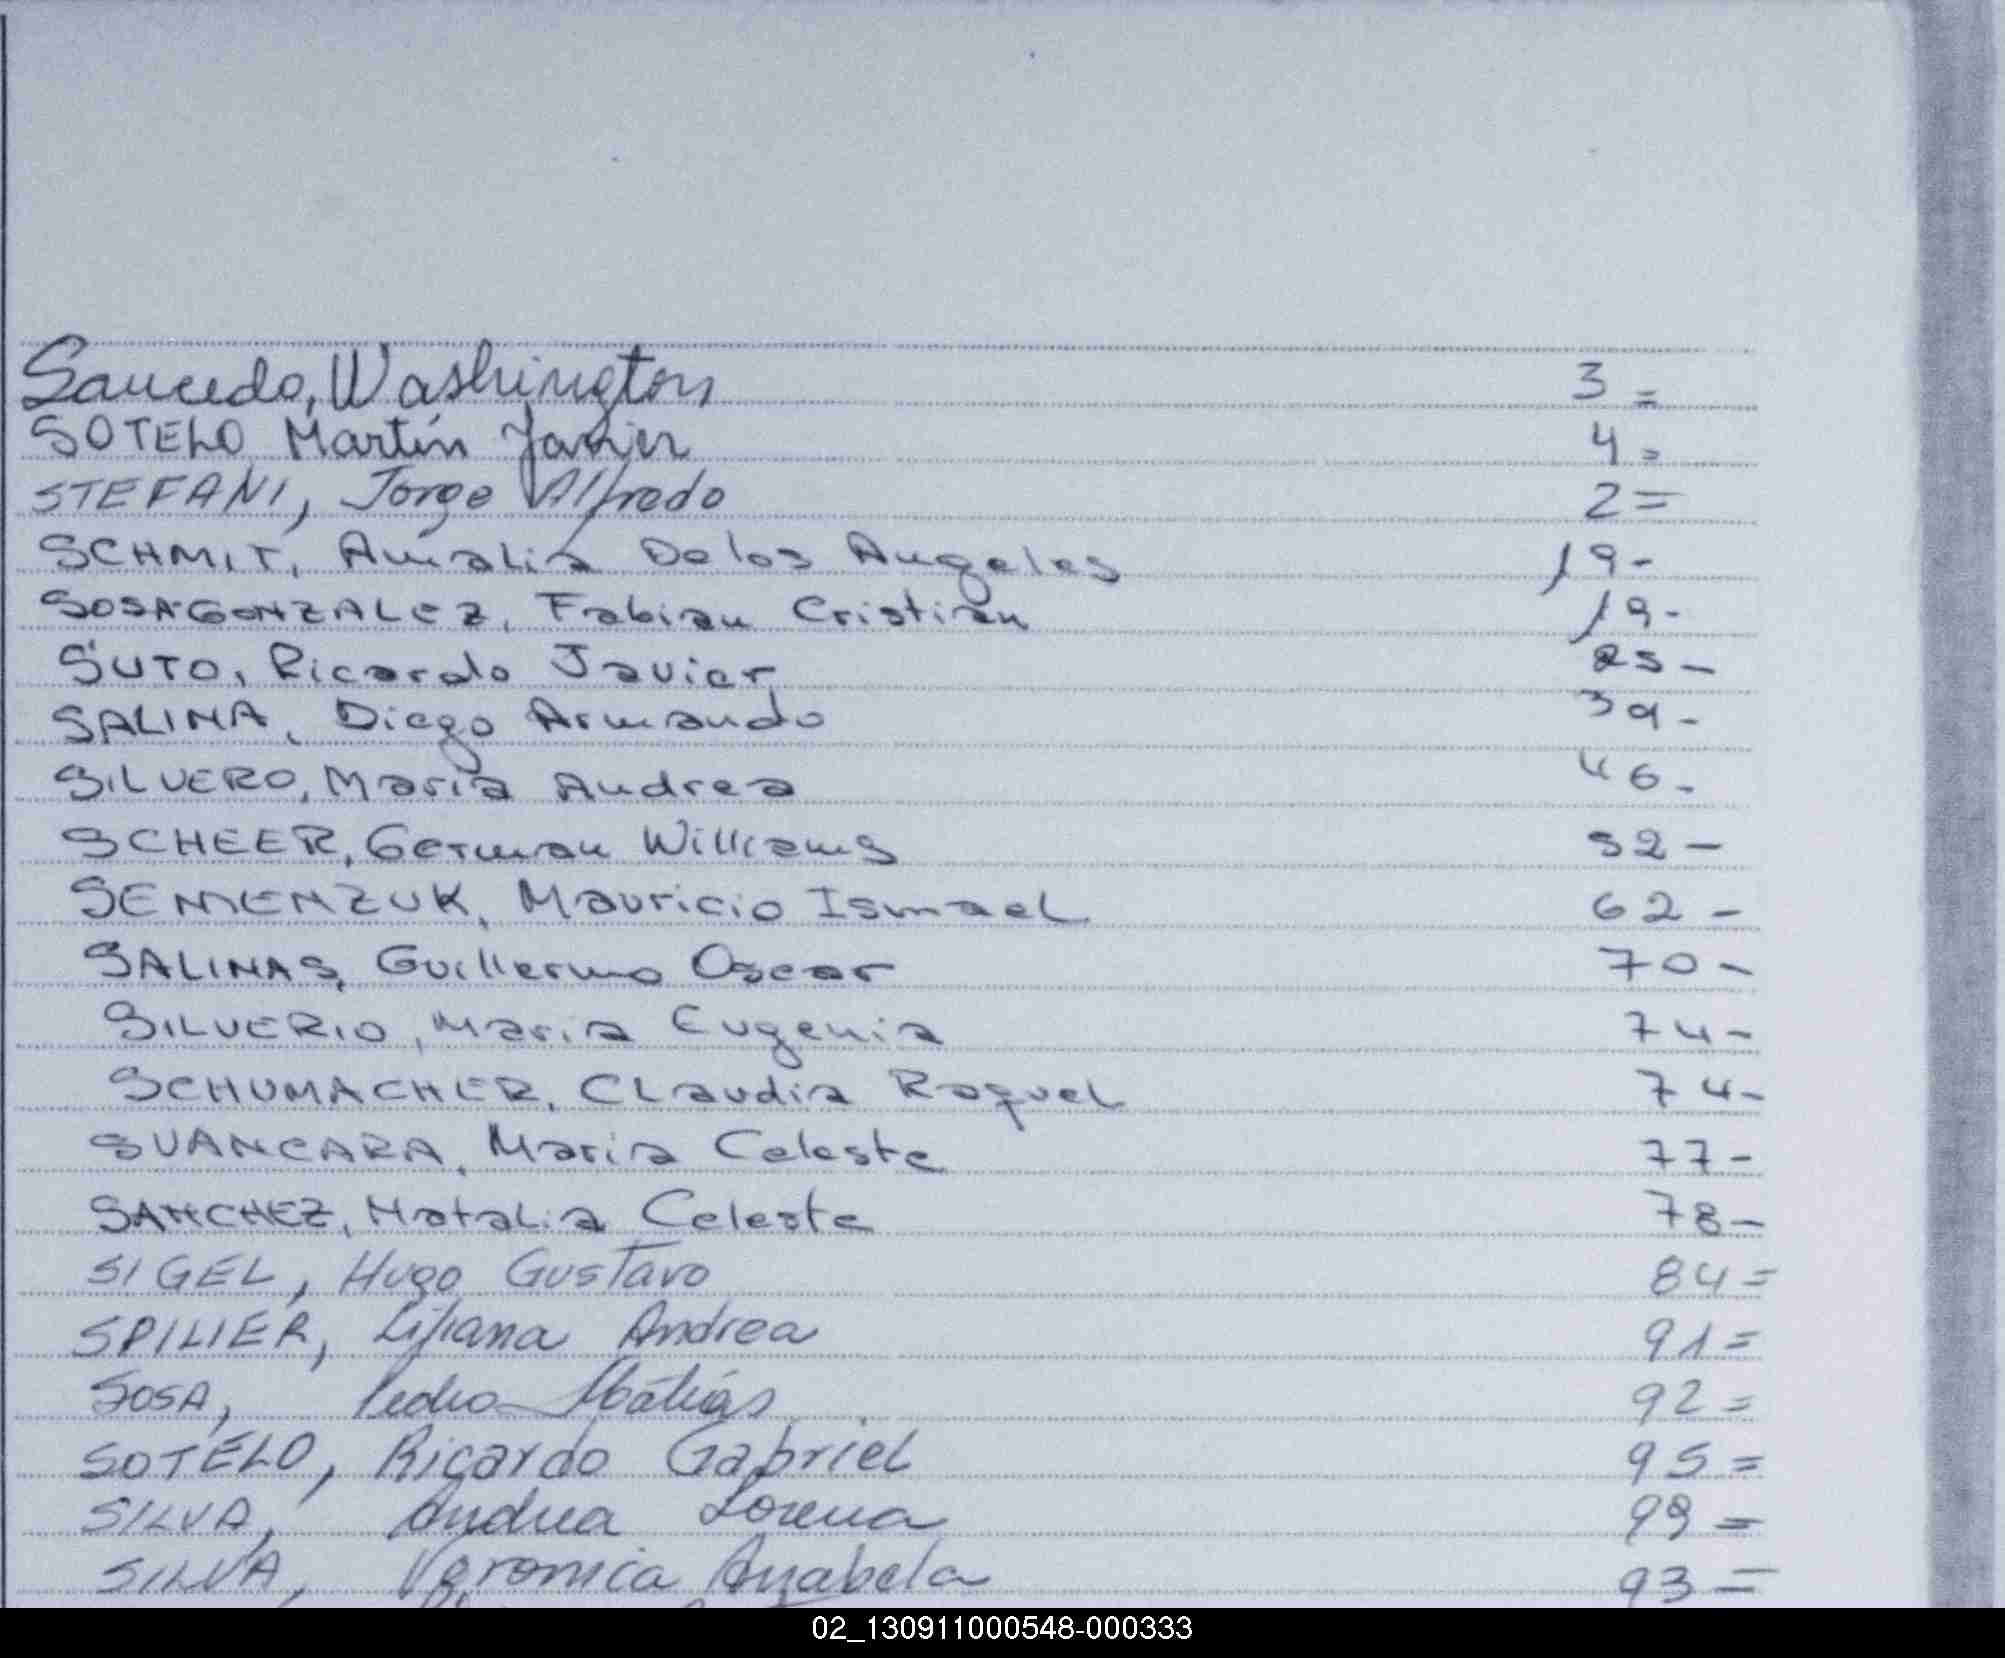 Saucedo, Washington 3 =
SOTELO Martín Javier 4 =
STEFANI, Jorge Alfredo 2 =
SCHMIT, Amalia De los Angeles 19-
SOSA GONZALEZ, Fabian Cristian 19-
SUTO, Ricardo Javier 25-
SALINA, Diego Armando 39-
SILVERO, Maria Andrea 46-
SCHEER, German Williams 52-
SEMENZUK, Mauricio Ismael 62-
SALINAS, Guillermo Oscar 70-
SILVERIO, Maria Eugenia 74-
SCHUMACHER, Claudia Raquel 74-
SVANCARA, Maria Celeste 77-
SANCHEZ, Natalia Celeste 78-
SIGEL, Hugo Gustavo 84=
SPILIER, Liliana Andrea 91=
SOSA, Pedro Matías 92=
SOTELO, Ricardo Gabriel 95=
SILVA, Andrea Lorena 99=
SILVA, Veronica Anabela 93=
02_130911000548-000333